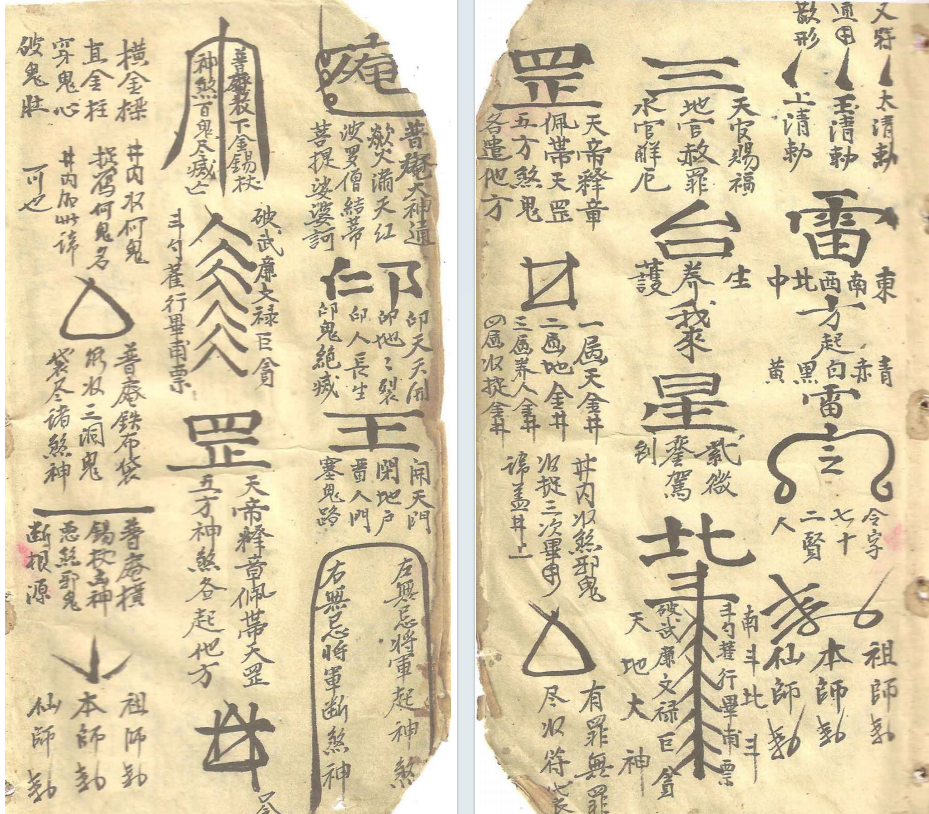 又符
通用
散形
太清勅
玉清勅
上清勅
雷
東南西北中
方起
青赤白黑黄
雷
之
令字
七十
二賢
人
祖師勅
本師勅
仙師勅
三
天官賜福
地官赦罪
水官解厄
台
生養護
我來
星
紫微
鑾駕
到
北斗
南斗北斗
斗勺藿行畢甫票
破武廉文禄巨貪
天地大神
罡
天帝釋章
佩帶天罡
五方煞鬼
各遣他方
一屈天金井
二屈地金井
三屈養人金井
四屈收捉金井
井內收煞邪鬼
收捉三次畢用
諱盖井上
有罪無罪
尽收符袋
庵
普庵大神通
歘火滿天紅
波罗僧結蒂
菩提娑婆訶
仁卩
卬天天開
卬地地裂
卬人長生
卬鬼絕滅
王
開天門
閉地户
畱人門
塞鬼路
左無忌將軍起神煞
右無忌將軍断煞神
普庵教下金錫杖
神煞百鬼尽滅亡
破武廉文禄巨貪
斗勺藿行畢甫票
罡
天帝釋章佩帶天罡
五方神煞各起他方
橫金橾
直金枉
穿鬼心
破鬼肚
井內收何鬼
捉寫何鬼名
井內用此諱
可也
普庵鉄布袋
能收三洞鬼
袋尽諸煞神
普庵橫
錫杖立神
惡煞邪鬼
断根源
祖師勅
本師勅
仙師勅